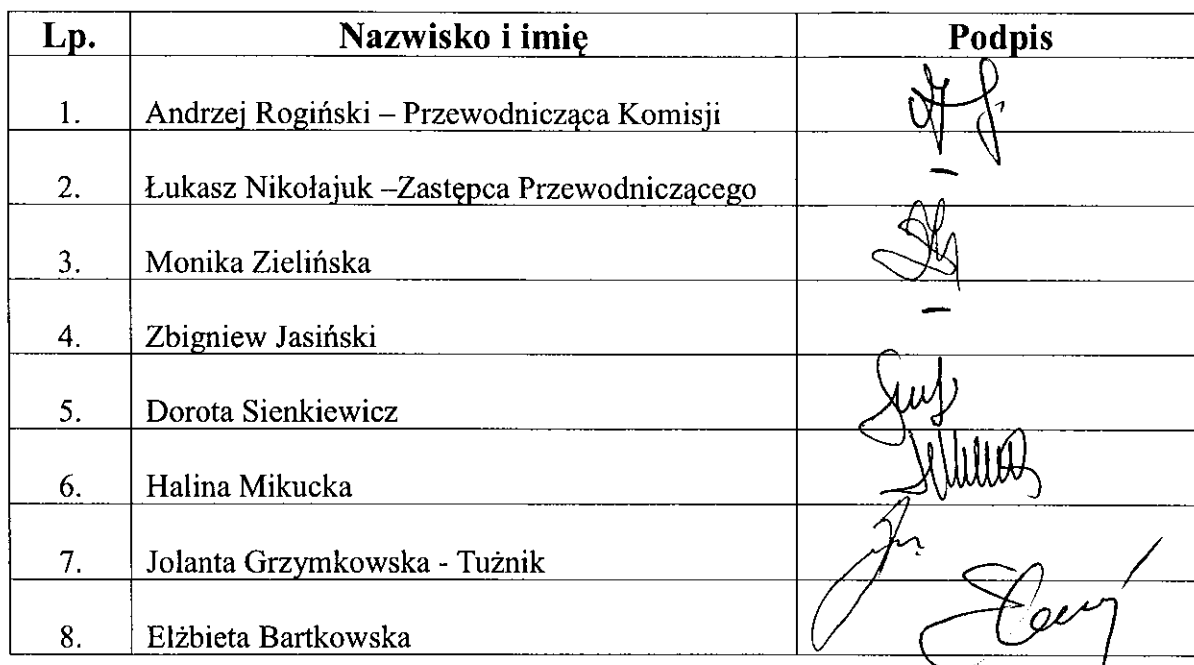 Lp. Nazwisko i imię Podpis
1. Andrzej Rogiński – Przewodnicząca Komisji
2. Łukasz Nikołajuk –Zastępca Przewodniczącego –
3. Monika Zielińska
4. Zbigniew Jasiński –
5. Dorota Sienkiewicz
6. Halina Mikucka
7. Jolanta Grzymkowska - Tużnik
8. Elżbieta Bartkowska